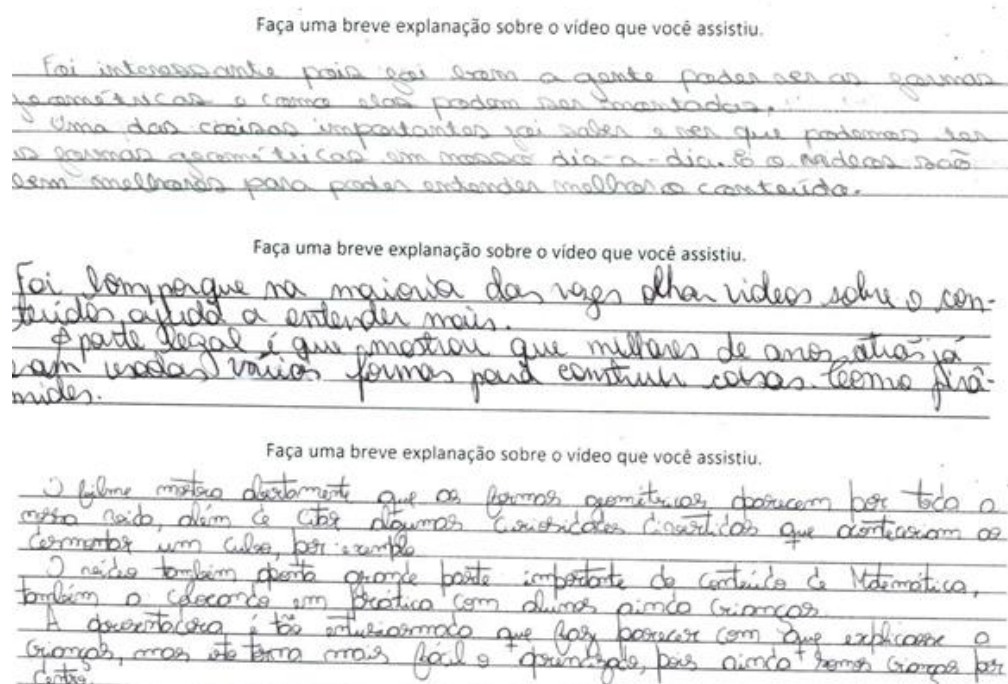 Faça uma breve explanação sobre o vídeo que você assistiu.
Foi interessante pois foi bom a gente poder ver as formas
geométricas e como elas podem ser montadas.
Uma das coisas importantes foi saber e ver que podemos ter
as formas geométricas em nosso dia-a-dia. E o videos são
bem melhores para poder entender melhor o conteúdo.
Faça uma breve explanação sobre o vídeo que você assistiu.
Foi bom porque na maioria das vezes olhar videos sobre o con-
teúdos ajuda a entender mais.
A parte legal é que mostrou que milhares de anos atrás já
eram usadas várias formas para construir coisas. Como pirâ-
mides.
Faça uma breve explanação sobre o vídeo que você assistiu.
O filme mostra abertamente que as formas geométricas aparecem por toda a
nossa além de citar algumas curiosidades divertidas que aconteceriam ao
desmontar um cubo, por exemplo
O vídeo também aponta grande parte importante do conteúdo de Matemática,
também o colocando em prática com alunos ainda crianças.
A apresentadora é tão entusiasmada que faz parecer com que explicasse a
crianças, mas isto torna mais fácil o aprendizado, pois ainda somos crianças por
dentro.